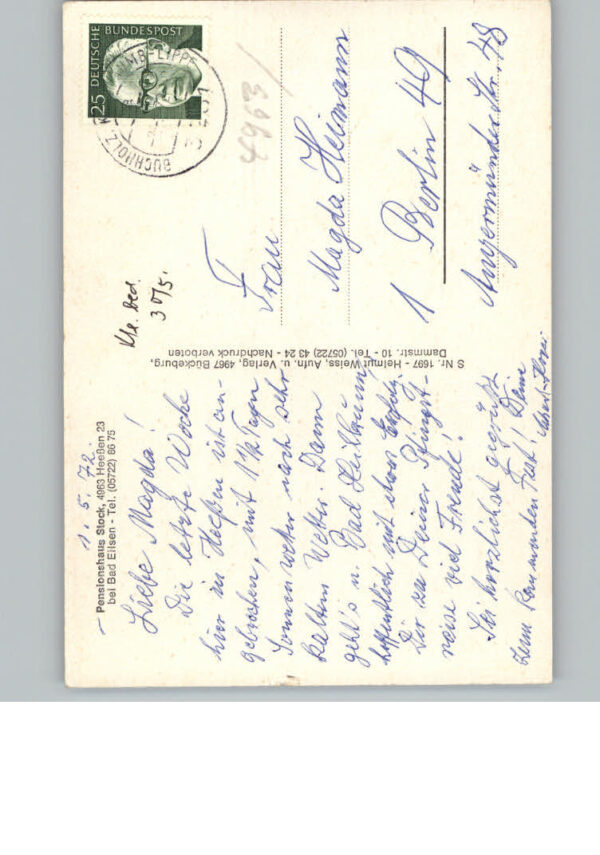 Pensionshaus Stock, 4963 Heeßen 23
bei Bad Eilsen - Tel. (05722) 86 75
1. 5. 72.
Liebe Magda!
Die letzte Woche
hier in Heeßen ist an-
gebrochen, mit 1½ Tagen
Sonnenwetter nach sehr
kaltem Wetter. Dann
geht's n. Bad
hoffentlich mit etwas Erfolg.
Dir zu Deiner Pfingst-
reise viel Freude!
Sei herzlichst gegrüßt
zum kommenden Fest! Deine
S Nr. 1697 - Helmut Weiss, Aufn. u. Verlag, 4967 Bückeburg,
Dammstr. 10 - Tel. (05722) 43 24 - Nachdruck verboten
30/5.
DEUTSCHE BUNDESPOST
25
BUCHHOLZ
4963
Frau
Magda Heimann
1 Berlin 49
Angermünder Str. 48